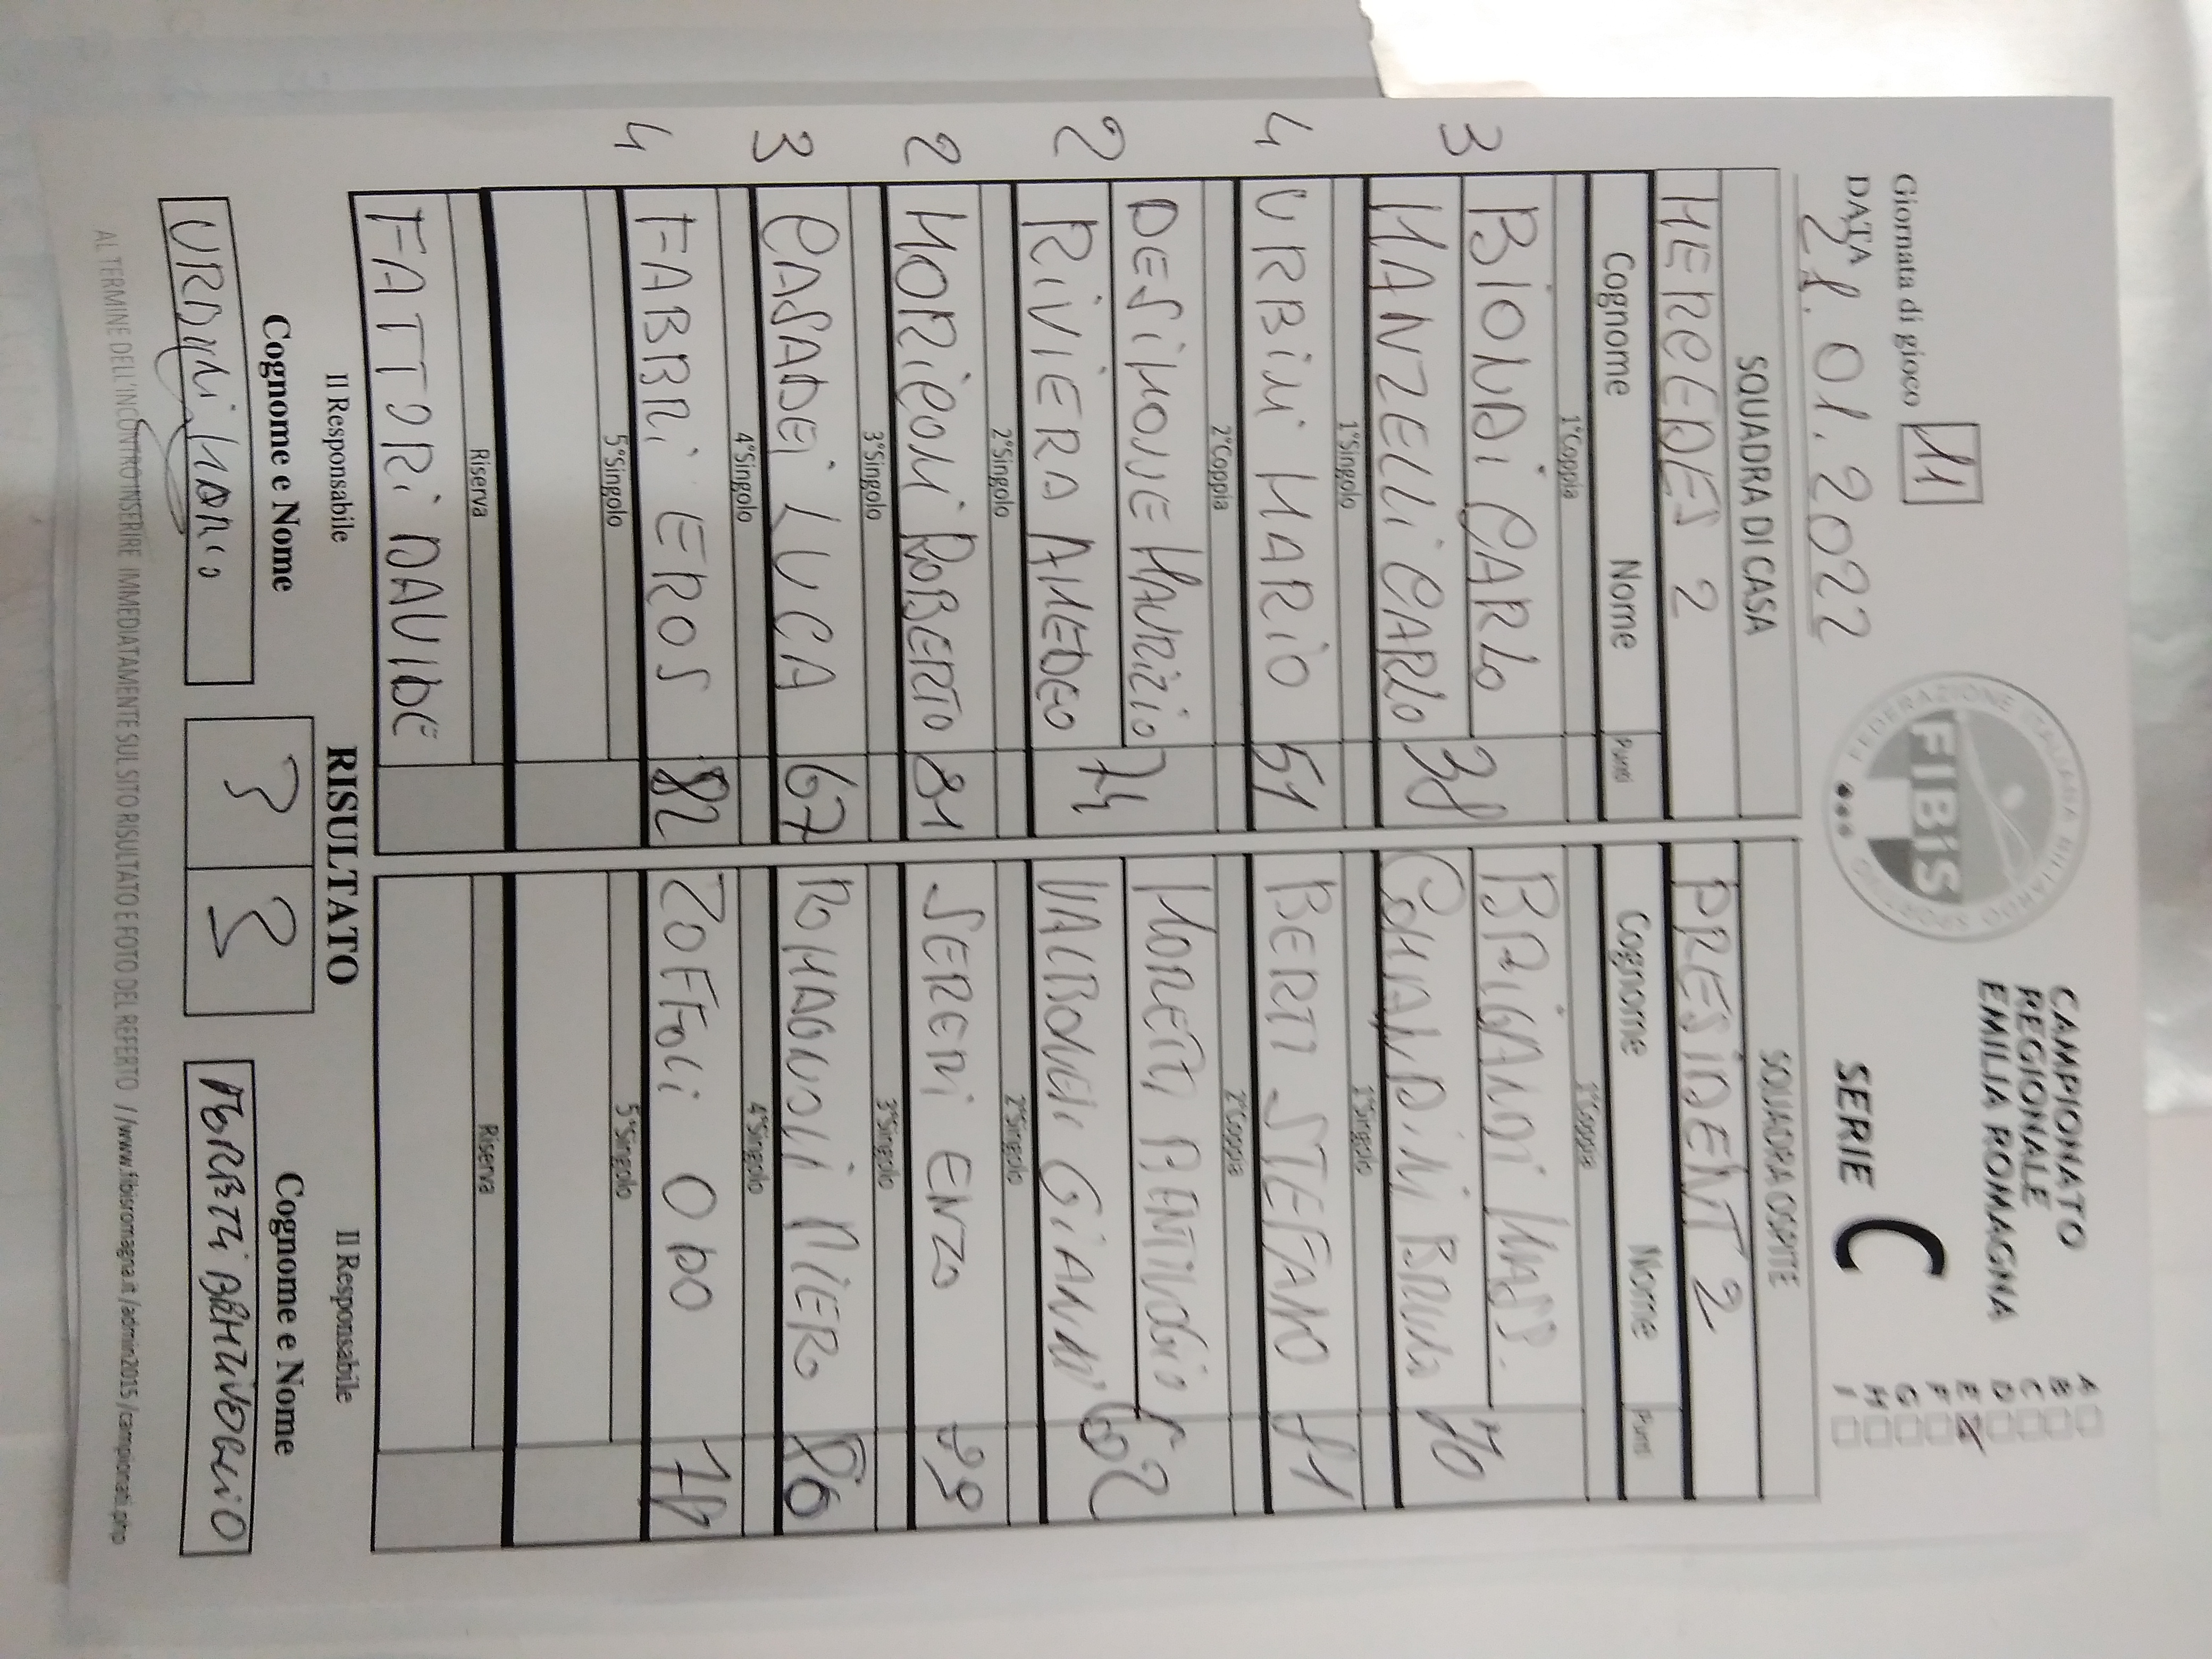 Giornata di gioco 11
DATA 21.01.2022
FEDERAZIONE ITALIANA BILIARDO SPORTIVO
FIBiS
CAMPIONATO
REGIONALE
EMILIA ROMAGNA
SERIE C
A
B
C
D
E
F
G
H
I
SQUADRA DI CASA SQUADRA OSPITE
MERCEDES 2 PRESIDENT 2
Cognome Nome Punti Cognome Nome Punti
1°Coppia 1°Coppia
3 BIONDI CARLO 38 BRIGANDI MASS. 70
MANZELLI CARLO COMANDINI BRUNO
1°Singolo 1°Singolo
4 URBINI MARIO 51 BERTI STEFANO 81
2°Coppia 2°Coppia
2 DESIMONE MAURIZIO 74 MORETTI BENTIVOGIO 62
RIVIERA AMEDEO VALBONETI GIANNI 62
2°Singolo 2°Singolo
2 MORICONI ROBERTO 81 SERENI ENZO 39
3°Singolo 3°Singolo
3 CASADEI LUCA 67 ROMAGNOLI PIERO 80
4°Singolo 4°Singolo
4 FABBRI EROS 82 ZOFFOLI ODO
5°Singolo 5°Singolo
Riserva Riserva
FATTORI DAVIDE
Il Responsabile RISULTATO Il Responsabile
Cognome e Nome 3 3 Cognome e Nome
URBINI MARIO
AL TERMINE DELL'INCONTRO INSERIRE IMMEDIATAMENTE SUL SITO RISULTATO E FOTO DEL REFERTO //www.fibisromagna.it/admin2015/campionati.php